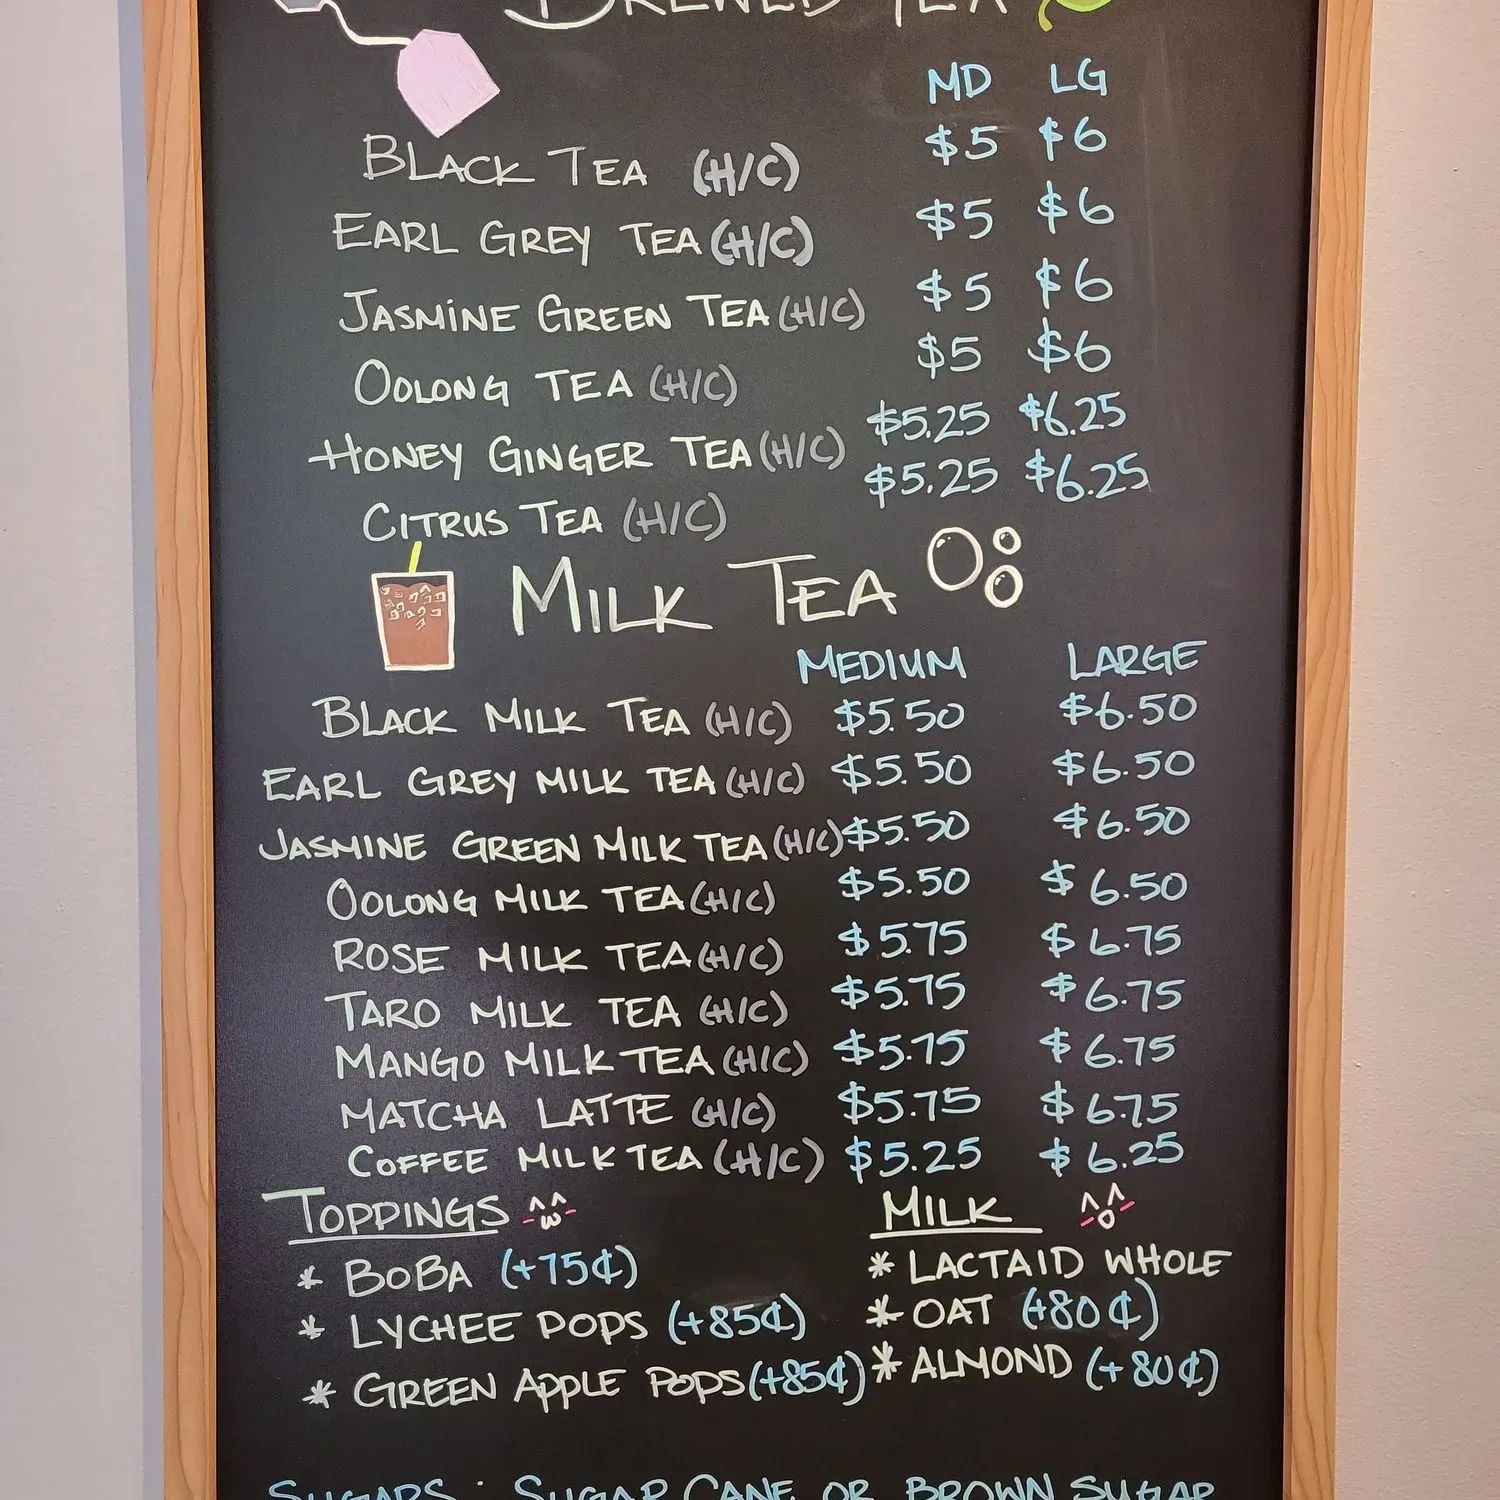 BREWED TEA
MD LG
BLACK TEA (H/C) $5 $6
EARL GREY TEA (H/C) $5 $6
JASMINE GREEN TEA (H/C) $5 $6
OOLONG TEA (H/C) $5 $6
HONEY GINGER TEA (H/C) $5.25 $6.25
CITRUS TEA (H/C) $5.25 $6.25
MILK TEA
MEDIUM LARGE
BLACK MILK TEA (H/C) $5.50 $6.50
EARL GREY MILK TEA (H/C) $5.50 $6.50
JASMINE GREEN MILK TEA (H/C) $5.50 $6.50
OOLONG MILK TEA (H/C) $5.50 $6.50
ROSE MILK TEA (H/C) $5.75 $6.75
TARO MILK TEA (H/C) $5.75 $6.75
MANGO MILK TEA (H/C) $5.75 $6.75
MATCHA LATTE (H/C) $5.75 $6.75
COFFEE MILK TEA (H/C) $5.25 $6.25
TOPPINGS ^w^ MILK ^o^
* BOBA (+75¢) * LACTAID WHOLE
* LYCHEE POPS (+85¢) * OAT (+80¢)
* GREEN APPLE POPS (+85¢) * ALMOND (+80¢)
SUGARS: SUGAR CANE OR BROWN SUGAR